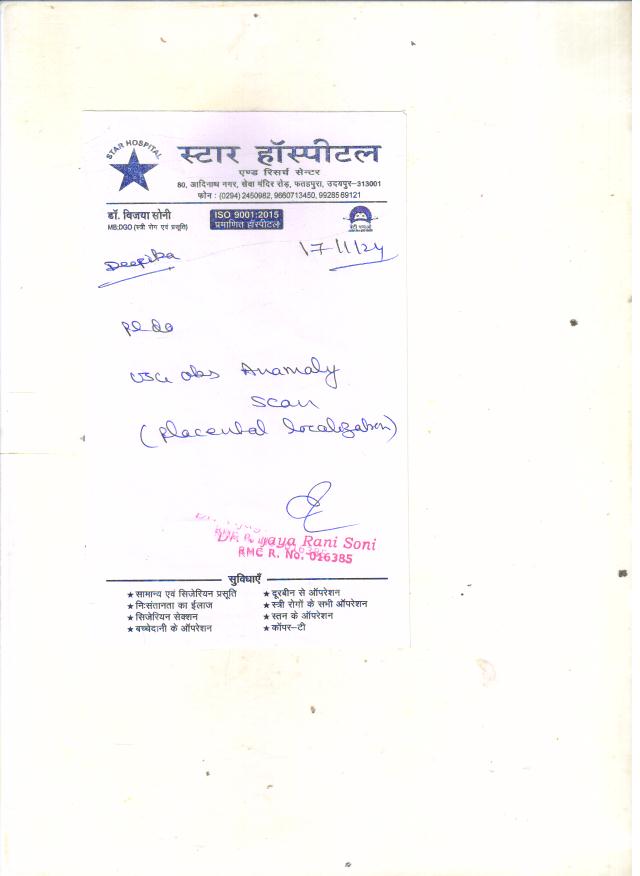 STAR HOSPITAL
स्टार हॉस्पीटल
एण्ड रिसर्च सेन्टर
80, आदिनाथ नगर, सेवा मंदिर रोड़, फतहपुरा, उदयपुर-313001
फोन : (0294) 2450982, 9660713450, 9928569121
डॉ. विजया सोनी
MB:DGO (स्त्री रोग एवं प्रसूति)
ISO 9001:2015
प्रमाणित हॉस्पीटल
Deepika
17/1/24
Pl do
USG obs Anamaly
Scan
(Placental localization)
Rani Soni
RMC R. No. 016385
सुविधाएँ
★ सामान्य एवं सिजेरियन प्रसूति
★ निःसंतानता का ईलाज
★ सिजेरियन सेक्शन
★ बच्चेदानी के ऑपरेशन
★ दूरबीन से ऑपरेशन
★ स्त्री रोगों के सभी ऑपरेशन
★ स्तन के ऑपरेशन
★ कॉपर-टी